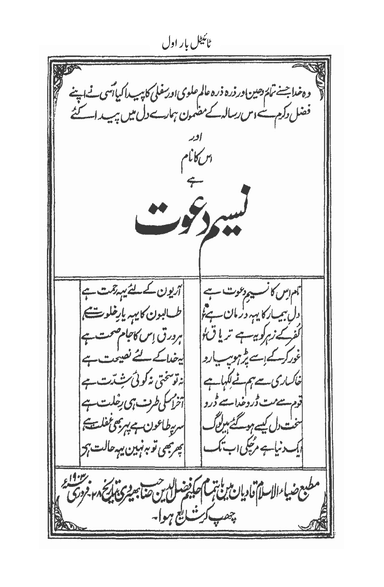 ٹائیٹل بار اول
وہ خدا جسنے تمام روحین اور ذرہ ذرہ عالم علوی اور سفلی کا پیدا کیا اُسی نے اپنے
فضل و کرم سے اس رسالہ کے مضمون ہمارے دل میں پیدا کئے
اور
اس کا نام
ہے
نسیم دعوت
نام اس کا نسیم دعوت ہے
آریوں کے لئے یہ رحمت ہے
دل بیمار کا یہ درمان ہے
طالبوں کا یہ یار خلوت ہے
کفر کے زہر کو یہ ہے تریاق
ہر ورق اس کا جام صحت ہے
غور کر کے اسے پڑھو پیارو
یہ خدا کے لئے نصیحت ہے
خاکساری سے ہم نے لکھا ہے
نہ تو سختی نہ کوئی شدّت ہے
قوم سے مت ڈرو خدا سے ڈرو
آخر اس کی طرف ہی رحلت ہے
سخت دل کیسے ہو گئے ہیں لوگ
سر پہ طاعون ہے پھر بھی غفلت ہے
ایک دنیا ہے مر چکی اب تک
پھر بھی توبہ نہیں یہ حالت ہے
مطبع ضیاء الاسلام قادیان میں باہتمام حکیم فضل الدین صاحب بھیروی بتاریخ ۲۸ فروری ۱۹۰۳ء
چھپ کر شایع ہوا۔